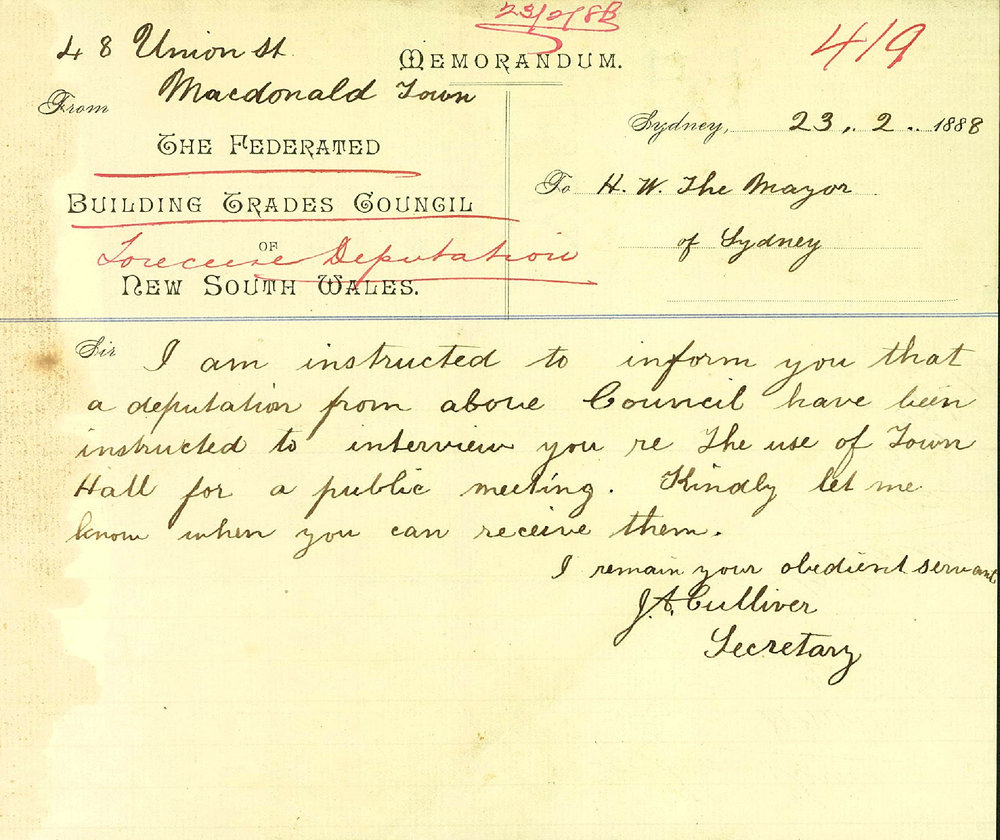 23/2/88
48 Union St
MEMORANDUM.
419
Macdonald Town
From
Sydney, 23. 2. 1888
THE FEDERATED
To H. W. The Mayor
BUILDING TRADES COUNCIL
of Sydney
OF
To receive Deputation
NEW SOUTH WALES.
Sir I am instructed to inform you that
a deputation from above Council have been
instructed to interview you re The use of Town
Hall for a public meeting. Kindly let me
know when you can receive them.
I remain your obedient servant
J. A. Culliver
Secretary